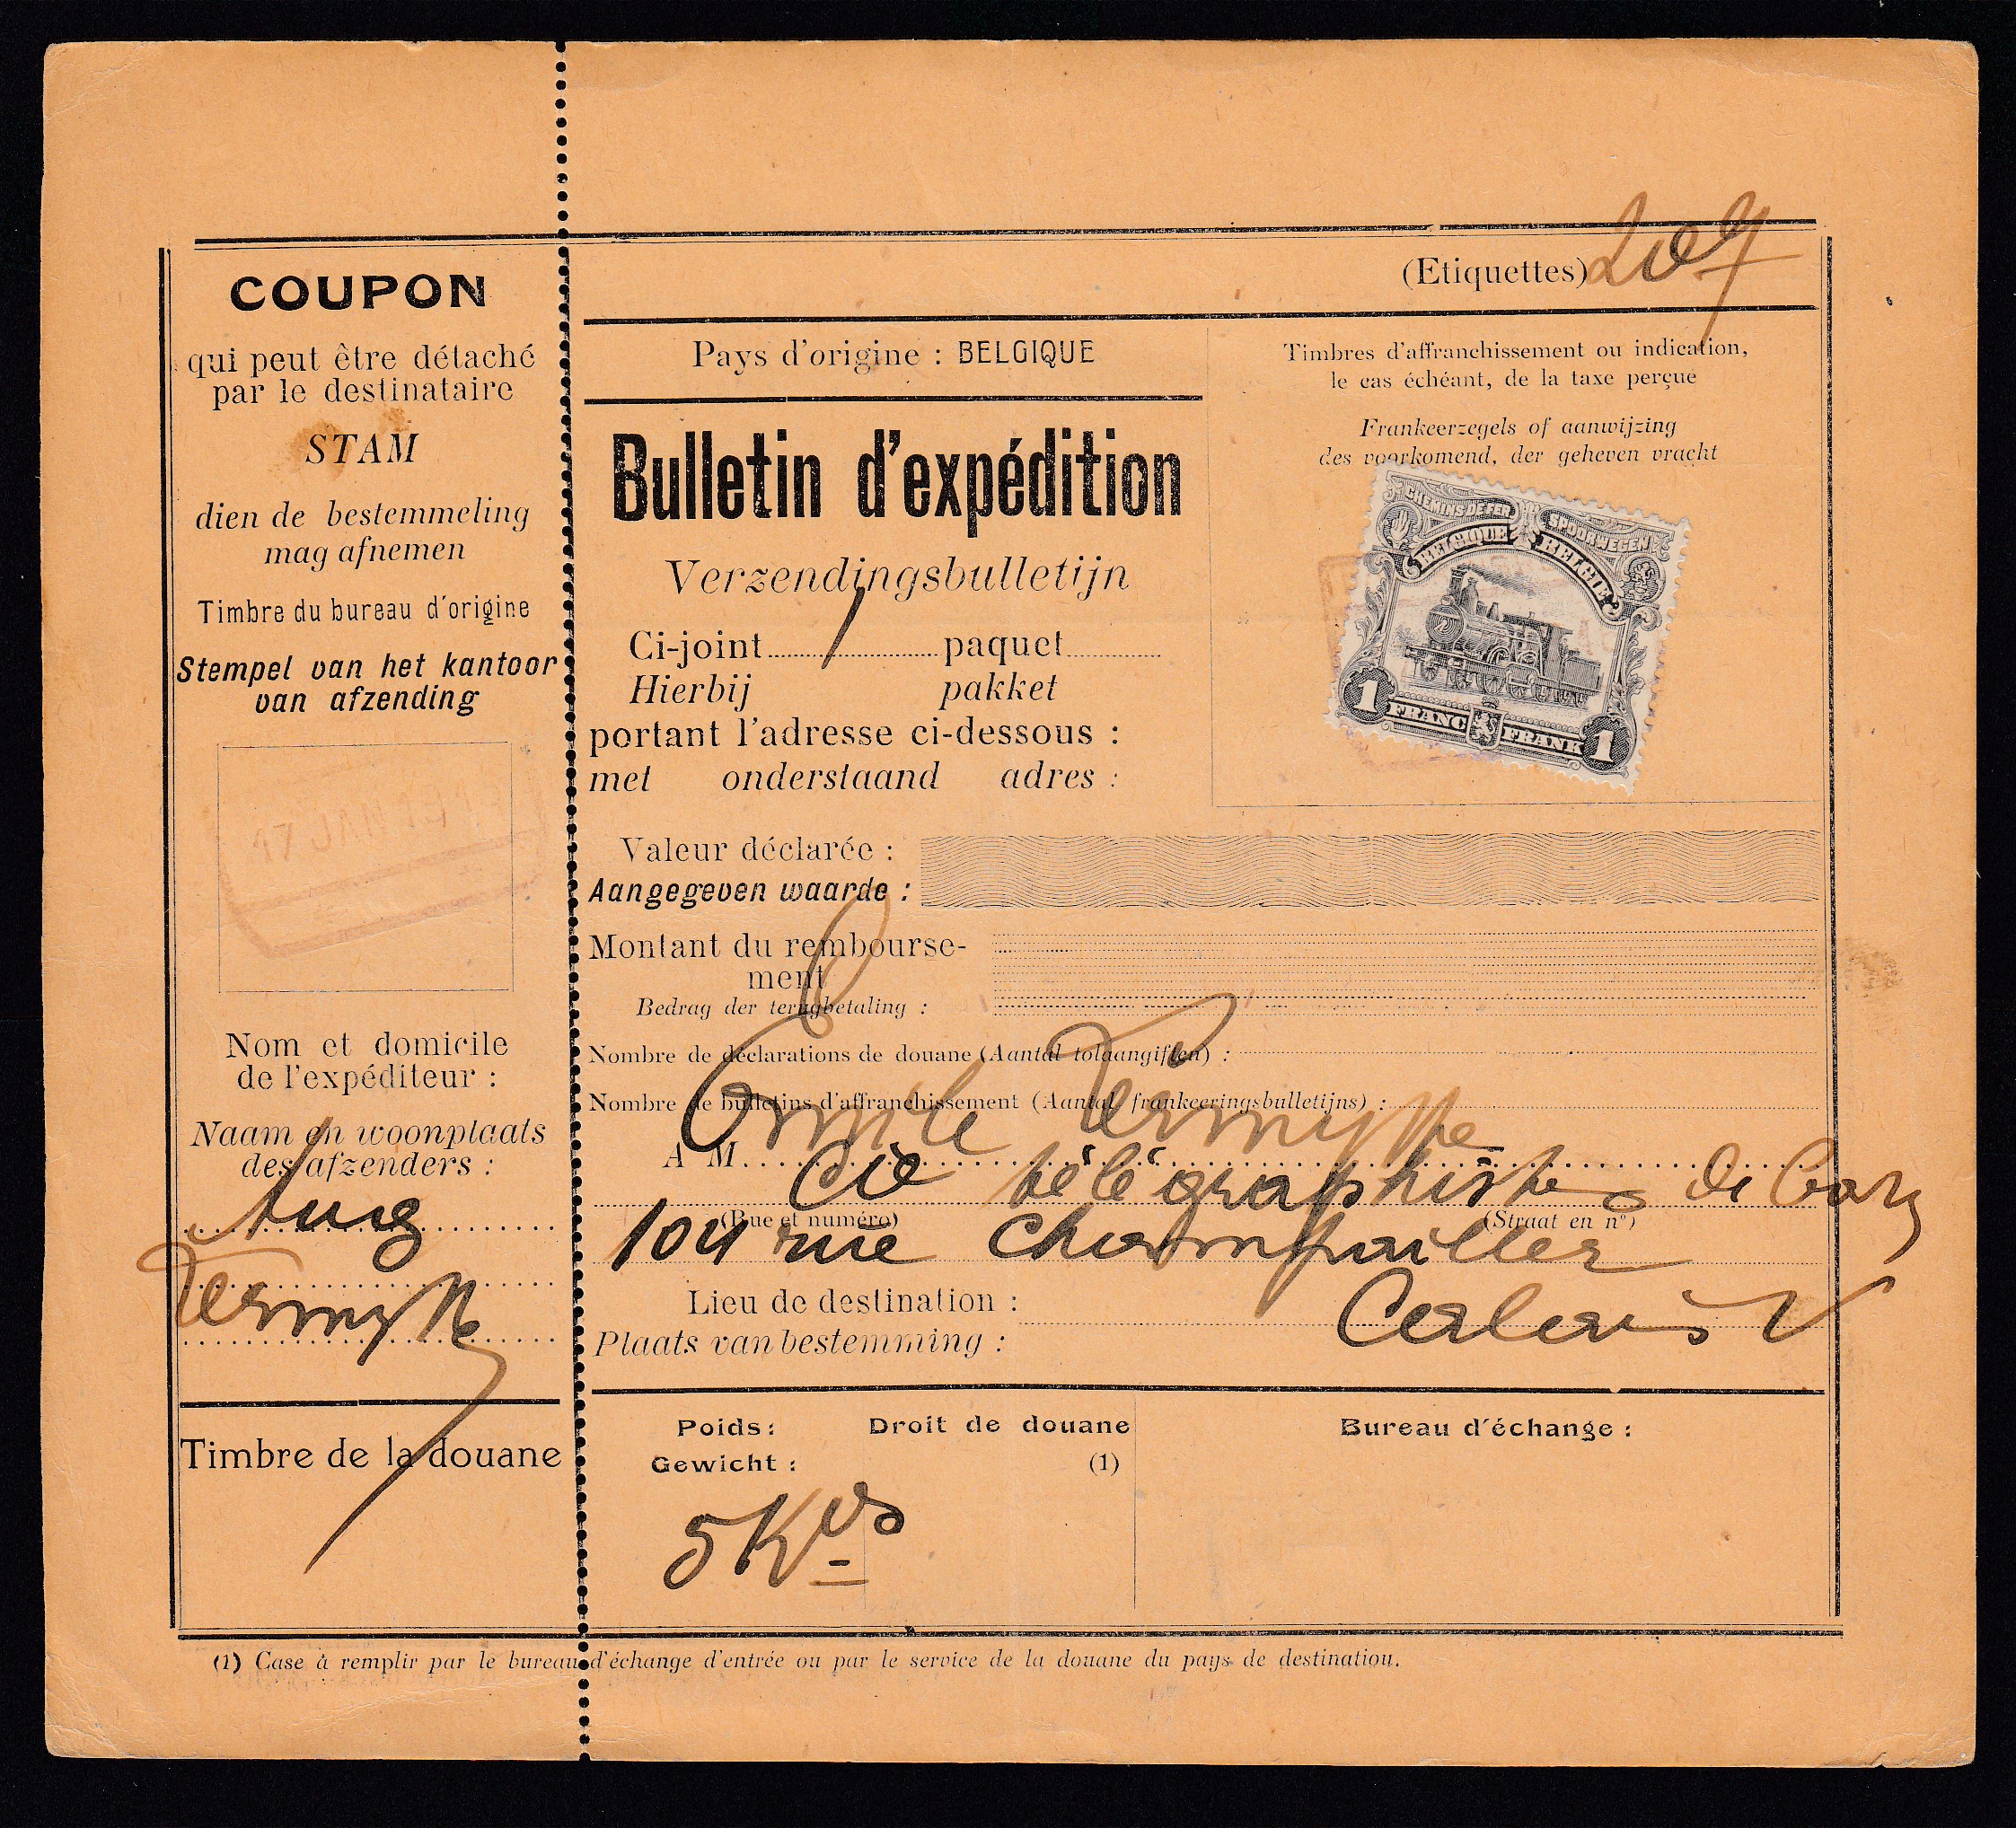 COUPON
qui peut être détaché
par le destinataire
STAM
dien de bestemmeling
mag afnemen
Timbre du bureau d'origine
Stempel van het kantoor
van afzending
17 JANV
Nom et domicile
de l'expéditeur :
Naam en woonplaats
des afzenders :
Aug
Vermylle
Timbre de la douane
(Etiquettes) 209
Pays d'origine : BELGIQUE
Bulletin d'expédition
Verzendingsbulletijn
Ci-joint 1 paquet
Hierbij pakket
portant l'adresse ci-dessous :
met onderstaand adres :
Timbres d'affranchissement ou indication,
le cas échéant, de la taxe perçue
Frankeerzegels of aanwijzing
des voorkomend, der geheven vracht
CHEMINS DE FER SPOORWEGEN
BELGIQUE BELGIE
1 FRANC FRANK 1
Valeur déclarée :
Aangegeven waarde :
Montant du rembourse-
ment
Bedrag der terugbetaling :
Nombre de déclarations de douane (Aantal tolaangiften) :
Nombre de bulletins d'affranchissement (Aantal frankeeringsbulletijns) :
A M. Vermylle
Cie télégraphiste
(Rue et numéro) (Straat en nº)
104 rue
Lieu de destination :
Plaats van bestemming :
Poids :
Gewicht :
5 Kos
Droit de douane
(1)
Bureau d'échange :
(1) Case à remplir par le bureau d'échange d'entrée ou par le service de la douane du pays de destination.